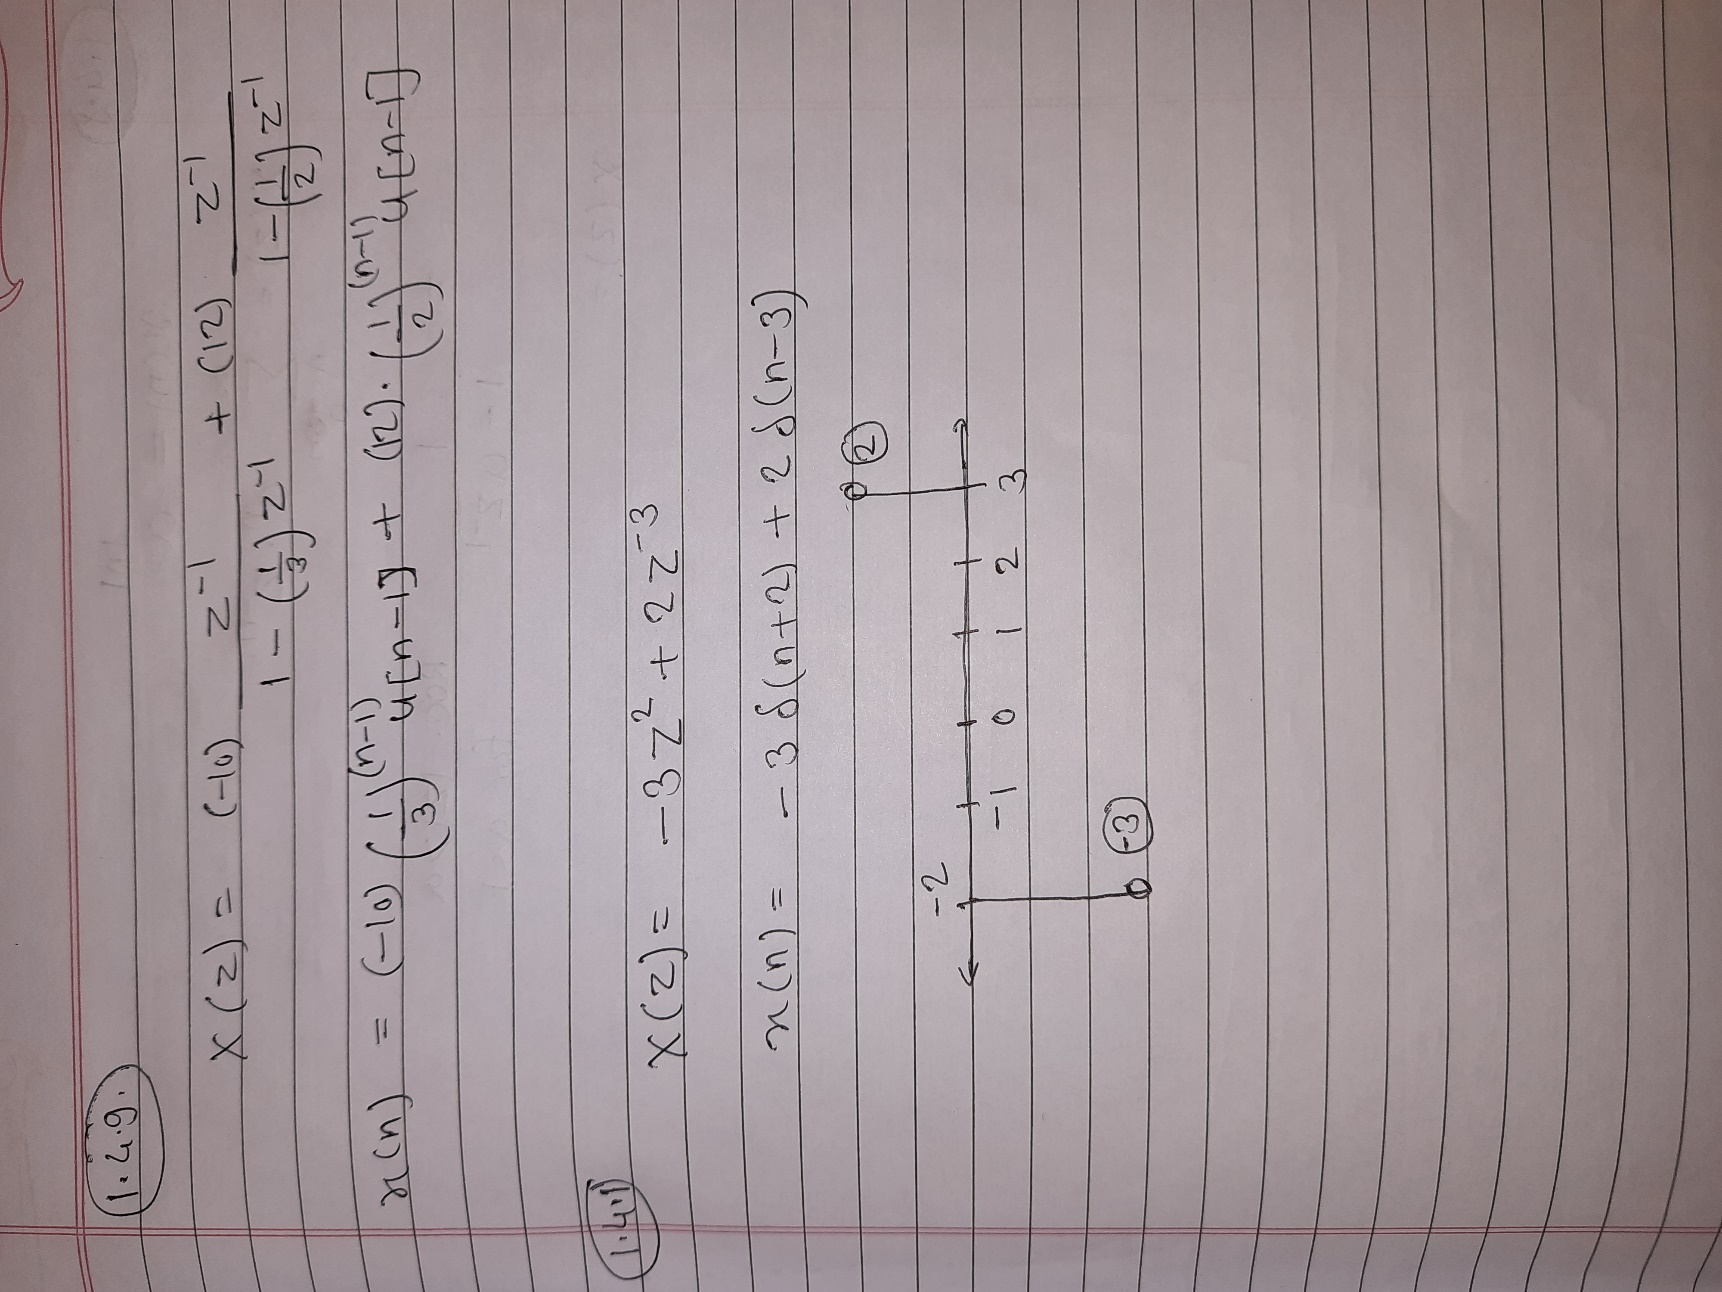 1.4.9.
X(z) = (-10) z^-1 / 1-(1/3)z^-1 + (12) z^-1 / 1-(1/2)z^-1
x(n) = (-10) (1/3)^(n-1) u[n-1] + (12).(1/2)^(n-1) u[n-1]
1.4.1
X(z) = -3z^2 + 2z^-3
x(n) = -3 δ(n+2) + 2 δ(n-3)
2
-2
-1 0 1 2 3
-3